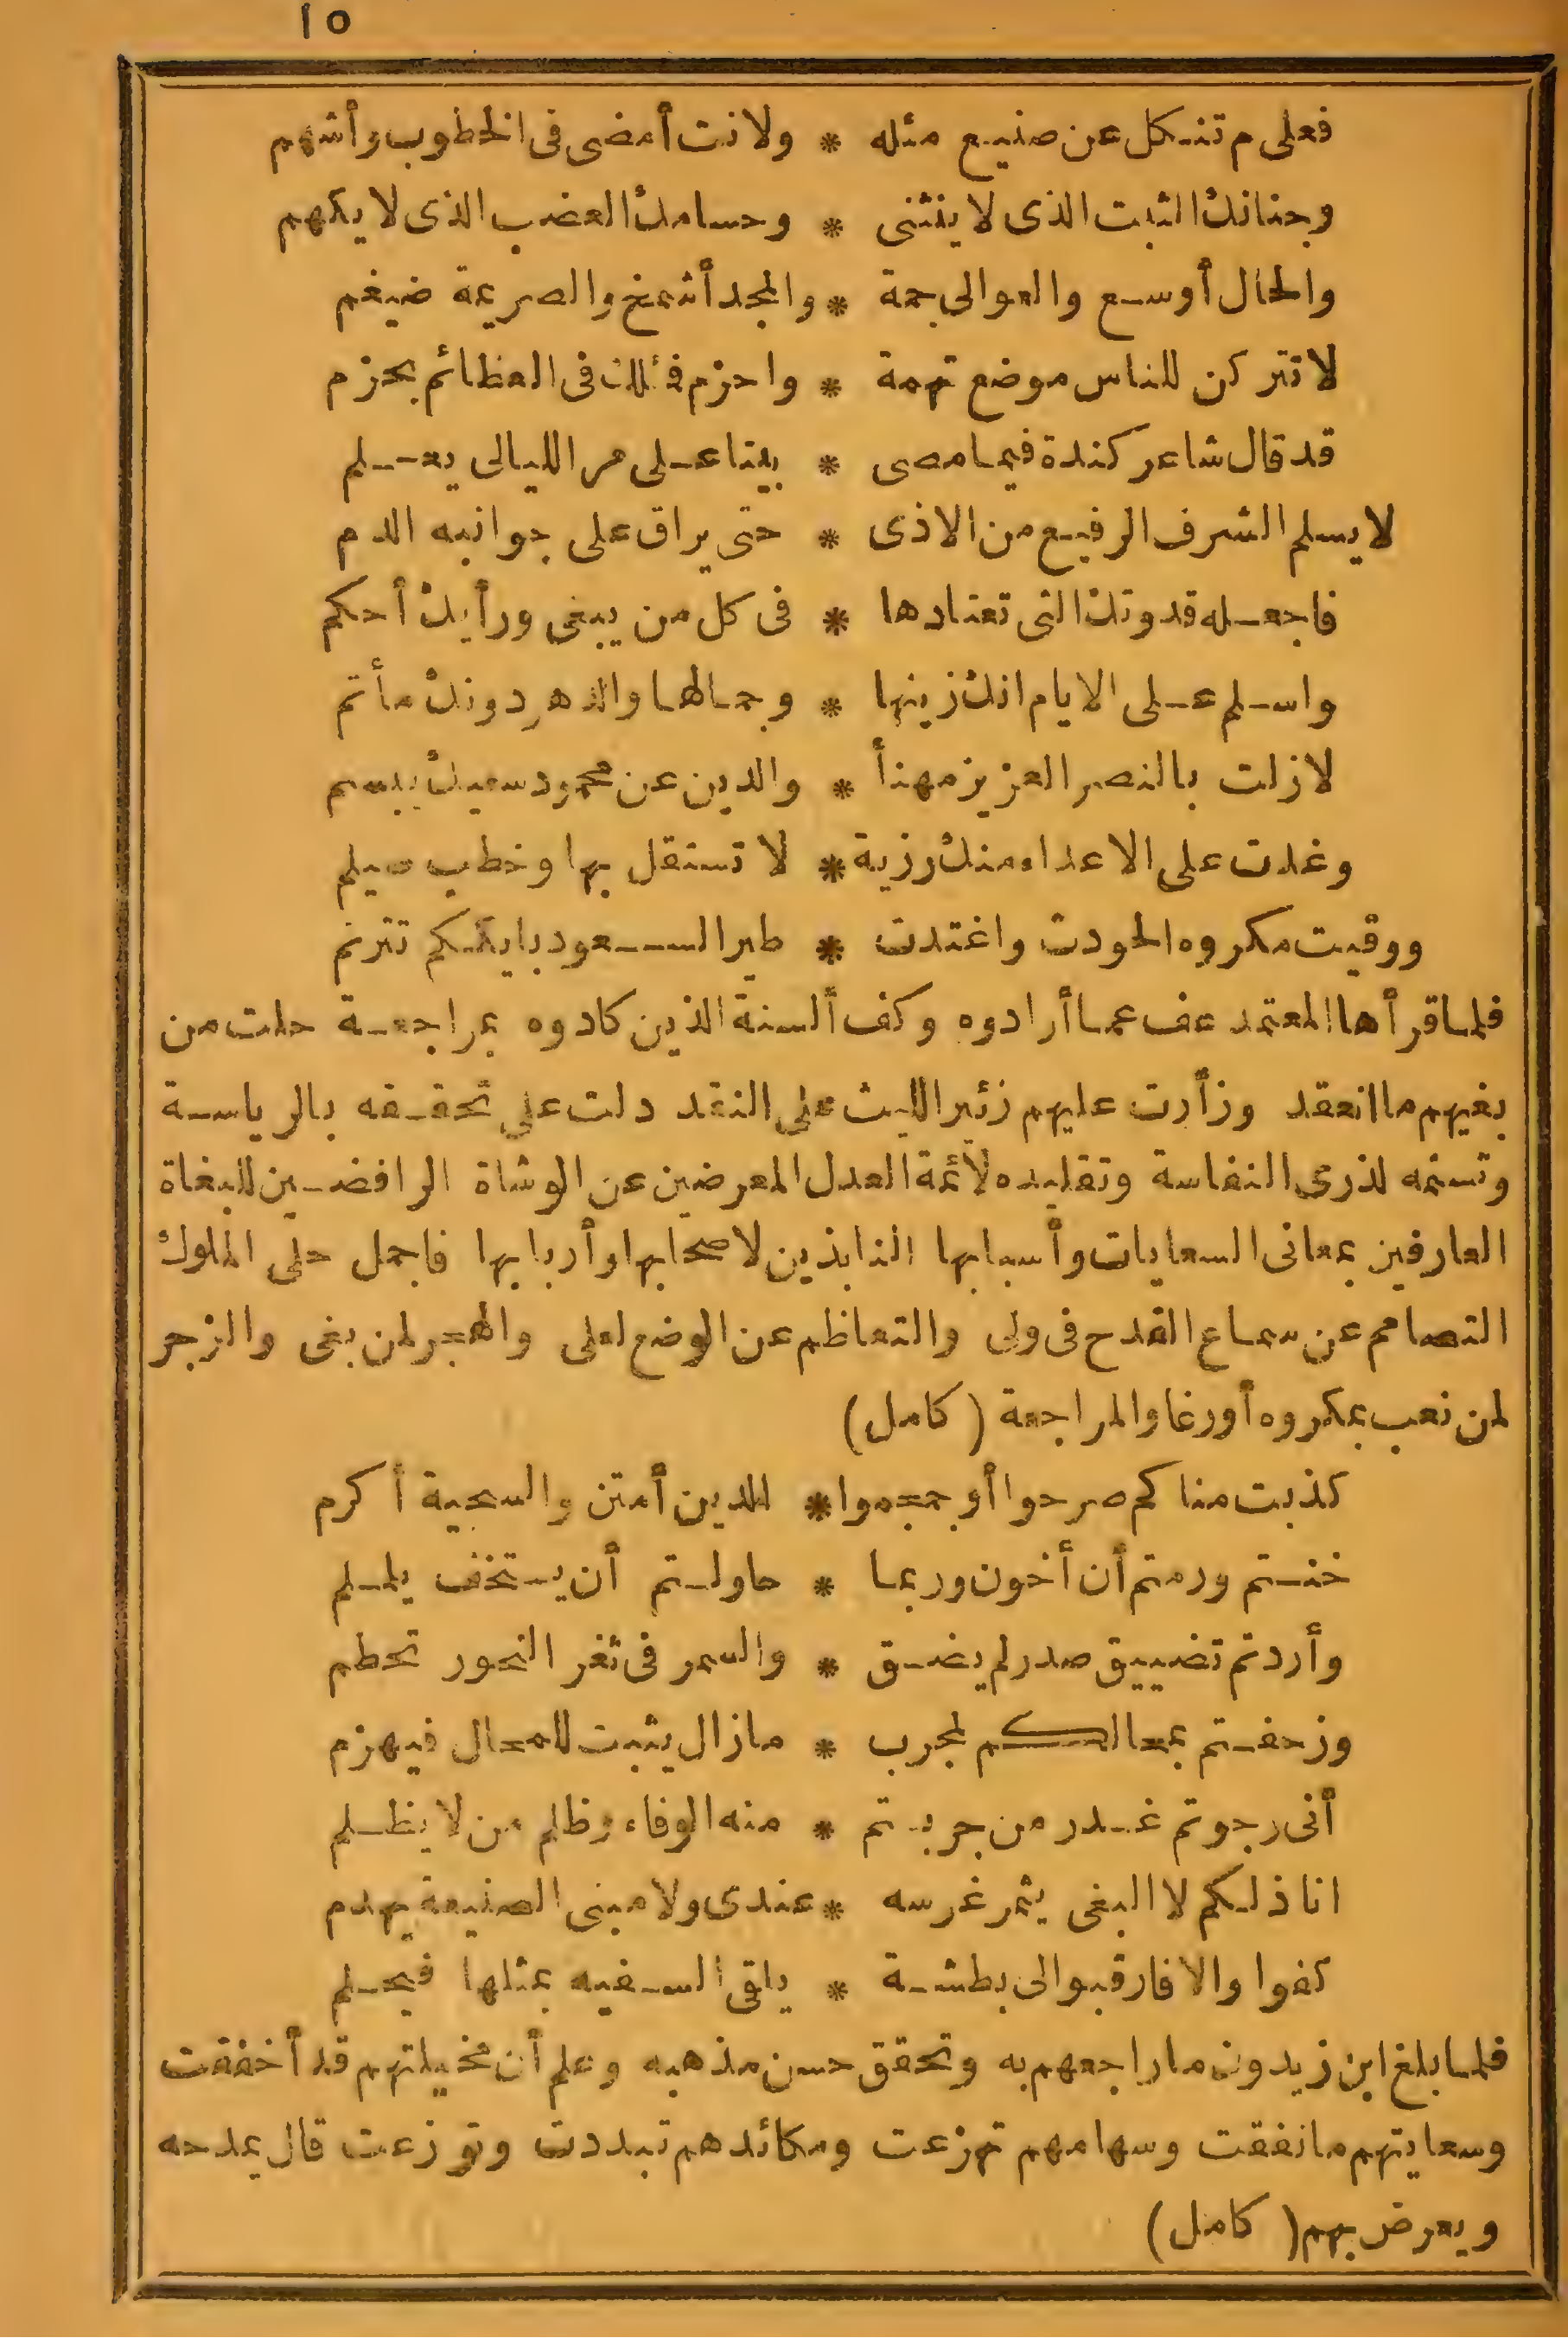 ١٥
فعلى م تنكل عن صنيع مثله * ولانت أمضى فى الخطوب وأشهم
وجنانك الثبت الذى لا ينثنى * وحسامك العضب الذى لا يكهم
والحال أوسع والعوالى جمة * والمجد أشمخ والصريمة ضيغم
لا تتركن للناس موضع تهمة * واحزم فمثلك فى العظائم يحزم
قد قال شاعر كندة فيما مضى * بيتا على مر الليالى يعلم
لا يسلم الشرف الرفيع من الاذى * حتى يراق على جوانبه الدم
فاجعله قدوتك التى تعتادها * فى كل من يبغى ورأيك أحكم
واسلم على الايام انك زينها * وجمالها والدهر دونك مأتم
لازلت بالنصر العزيز مهنأ * والدين عن محمود سعيك يبسم
وغدت على الاعداء منك رزية * لا تستقل بها وخطب صيلم
ووقيت مكروه الحودث واغتدت * طير السعود بايككم تترنم
فلما قرأها المعتمد عف عما أرادوه وكف ألسنة الذين كادوه بمراجعة حلت من
بغيهم ما انعقد وزأرت عليهم زئير الليث على النقد دلت على تحققه بالرياسة
وتسنمه لذرى النفاسة وتقليده لأئمة العدل المعرضين عن الوشاة الرافضين للبغاة
العارفين بمعانى السعايات وأسبابها النابذين لاصحابها وأربابها فاجمل حلى الملوك
التصامم عن سماع القدح فى ولى والتعاظم عن الوضع لعلى والهجر لمن بغى والزجر
لمن نعب بمكروه أورغا والمراجعة (كامل)
كذبت مناكم صرحوا أو جمجموا * الدين أمتن والسجية أكرم
خنتم ورمتم أن أخون وربما * حاولتم أن يستخف يلملم
وأردتم تضييق صدر لم يضق * والسمر فى ثغر النحور تحطم
وزحفتم بمحالكم لمجرب * مازال يثبت للمحال فيهزم
أنى رجوتم غدر من جربتم * منه الوفاء وظلم من لا يظلم
انا ذلكم لا البغى يثمر غرسه * عندى ولا مبنى الصنيعة يهدم
كفوا والا فارقبوا لى بطشة * يلقى السفيه بمثلها فيحلم
فلما بلغ ابن زيدون ما راجعهم به وتحقق حسن مذهبه وعلم أن مخيلتهم قد أخفقت
وسعايتهم ما نفقت وسهامهم تهزعت ومكائدهم تبددت وتوزعت قال يمدحه
ويعرض بهم (كامل)